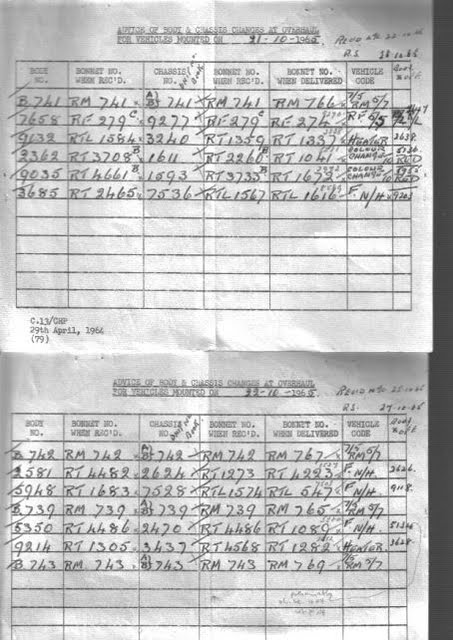 ADVICE OF BODY & CHASSIS CHANGES AT OVERHAUL
FOR VEHICLES MOUNTED ON 21-10-1965
BODY NO. BONNET NO. WHEN REC'D. CHASSIS NO. BONNET NO. WHEN REC'D. BONNET NO. WHEN DELIVERED VEHICLE CODE
B.741 RM 741 A) B) 741 RM 741 RM 766 7/5 RM 5/7
7658 RF 279 C 9277 RF 279 C RF 274
9132 RTL 1584 3240 RT 1359 RT 1337 HEATER 3638
2362 RT 3708 B 1611 RT 2260 B RT 1041 COLOUR CHANGE TO RED
9035 RT 4661 B 1593 RT 3735 B RT 1672 COLOUR CHANGE TO RED
3685 RT 2465 7536 RTL 1567 RTL 1616 F N/H
C.13/CHP
29th April, 1964
(79)
ADVICE OF BODY & CHASSIS CHANGES AT OVERHAUL
FOR VEHICLES MOUNTED ON 22-10-1965
BODY NO. BONNET NO. WHEN REC'D. CHASSIS NO. BONNET NO. WHEN REC'D. BONNET NO. WHEN DELIVERED VEHICLE CODE
B.742 RM 742 A) B) 742 RM 742 RM 767 7/5 RM 5/7
2581 RT 4482 2624 RT 1273 RT 4223 F N/H 2626
5948 RT 1683 7528 RTL 1574 RTL 547 F N/H 9118
B.739 RM 739 A) B) 739 RM 739 RM 765 7/5 RM 5/7
5350 RT 4486 2470 RT 4486 RT 1089 F N/H
9214 RT 1305 3437 RT 4568 RT 1282 HEATER 3628
B.743 RM 743 A) B) 743 RM 743 RM 769 7/5 RM 5/7